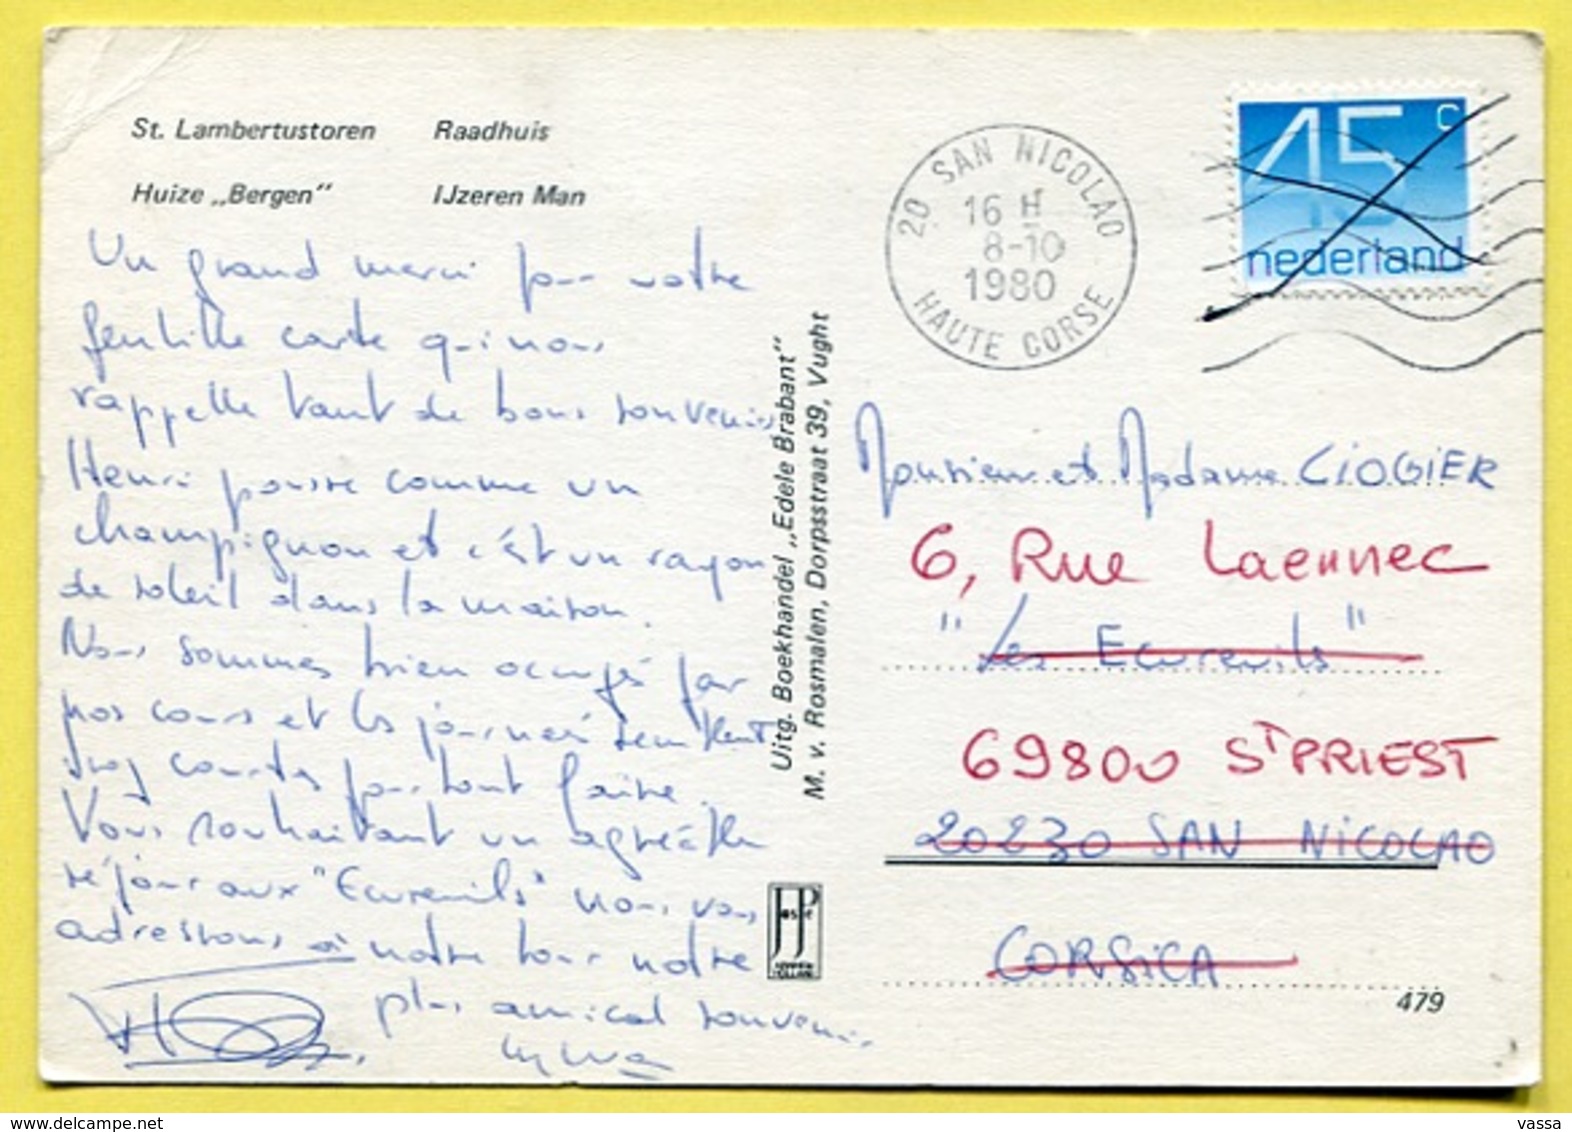 St. Lambertustoren Raadhuis
Huize „Bergen" IJzeren Man
Un grand merci pour votre
gentille carte qui nous
rappelle tant de bons souvenirs
Henri pousse comme un
champignon et c'est un rayon
de soleil dans la maison.
Nous sommes bien occupés par
nos cours et les journées semblent
trop courtes pour tout faire.
Vous souhaitant un agréable
séjour aux "Ecureuils" nous vous
adressons à notre tour notre
plus amical souvenir.
Uitg. Boekhandel „Edele Brabant"
M. v. Rosmalen, Dorpsstraat 39, Vught
20 SAN NICOLAO
16 H
8-10
1980
HAUTE CORSE
45 c
nederland
Monsieur et Madame CIOGIER
6, Rue Laennec
"Les Ecureuils"
69800 ST PRIEST
20230 SAN NICOLAO
CORSICA
479
vassa